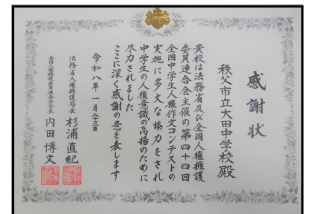 感謝状
秩父市立大田中学校殿
貴校は法務省及び全国人権擁護
委員連合会主催の第四十四回
全国中学生人権作文コンテストの
実施に多大な協力をされ
中学生の人権意識の高揚のために
尽力されました
ここに深く感謝の意を表します
令和八年一月二十三日
法務省人権擁護局長 杉浦直紀
全国人権擁護委員連合会会長 内田博文